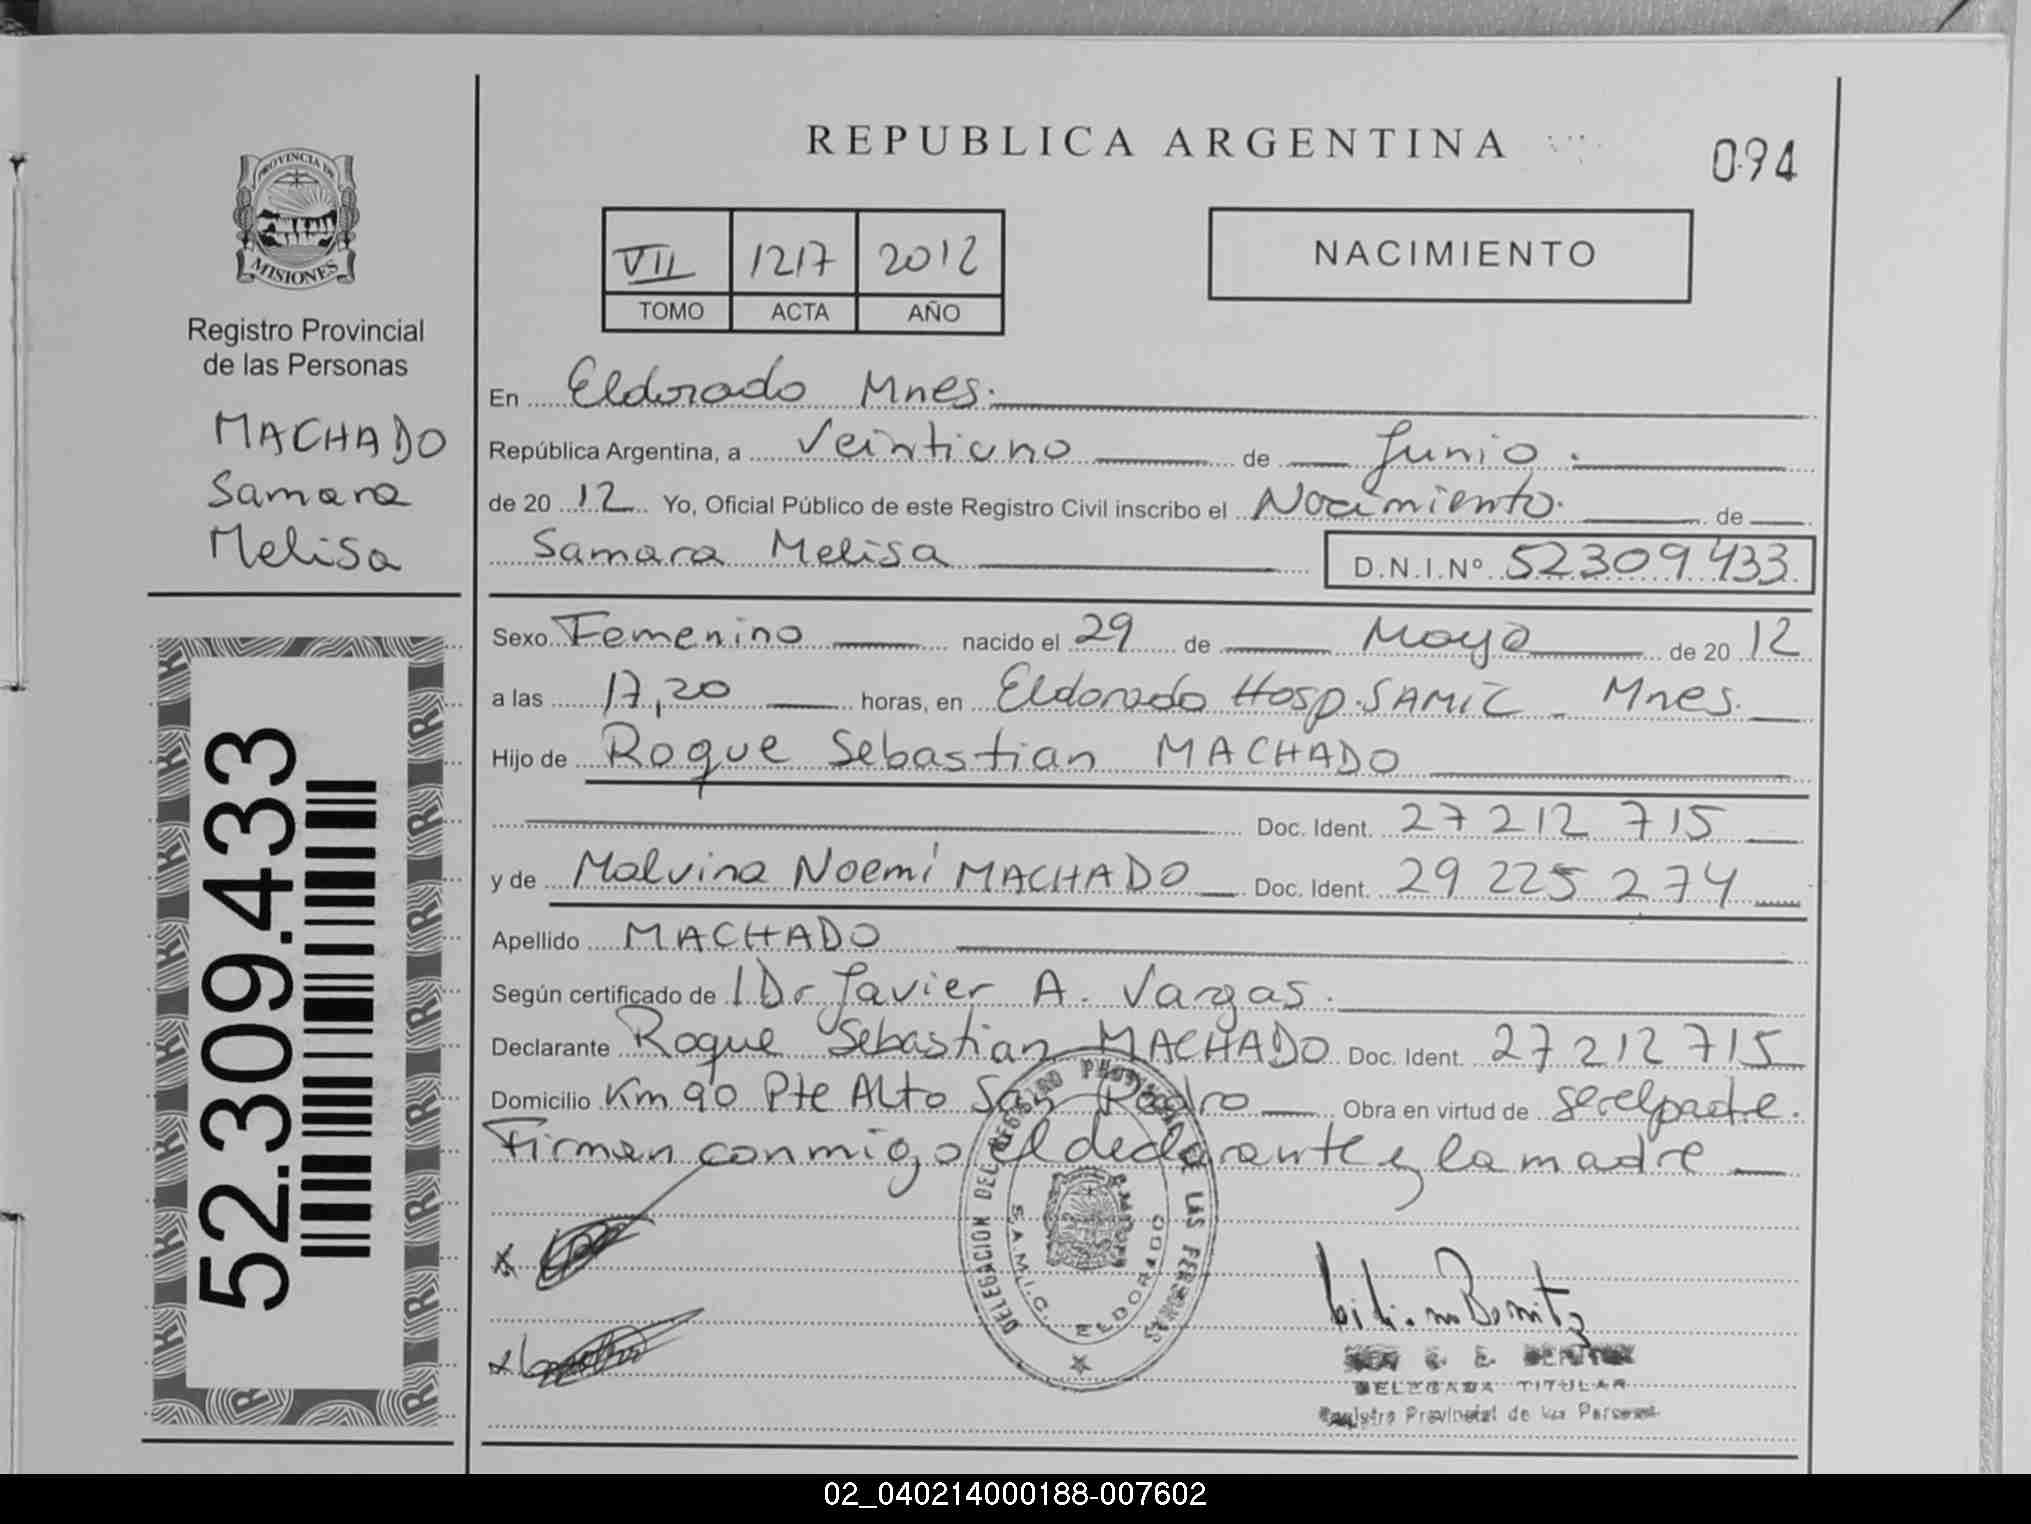 REPUBLICA ARGENTINA
094
PROVINCIA DE
MISIONES
Registro Provincial
de las Personas
MACHADO
Samara
Melisa
52.309.433
VII 1217 2012
TOMO ACTA AÑO
NACIMIENTO
En Eldorado Mnes.
República Argentina, a Veintiuno de Junio.
de 20 12 Yo, Oficial Público de este Registro Civil inscribo el Nacimiento. de
Samara Melisa D.N.I.Nº 52309433
Sexo Femenino nacido el 29 de Mayo de 20 12
a las 17,20 horas, en Eldorado Hosp. SAMIC - Mnes.
Hijo de Roque Sebastian MACHADO
Doc. Ident. 27 212 715
y de Malvina Noemí MACHADO Doc. Ident. 29 225 274
Apellido MACHADO
Según certificado de Dr Javier A. Vargas.
Declarante Roque Sebastian MACHADO Doc. Ident. 27 212 715
Domicilio Km 90 Pte Alto San Pedro Obra en virtud de ser el padre.
Firman conmigo el declarante y la madre
DELEGACION DEL REGISTRO PROVINCIAL DE LAS PERSONAS
S.A.M.I.C. ELDORADO
DELEGADA TITULAR
Registro Provincial de las Personas
02_040214000188-007602